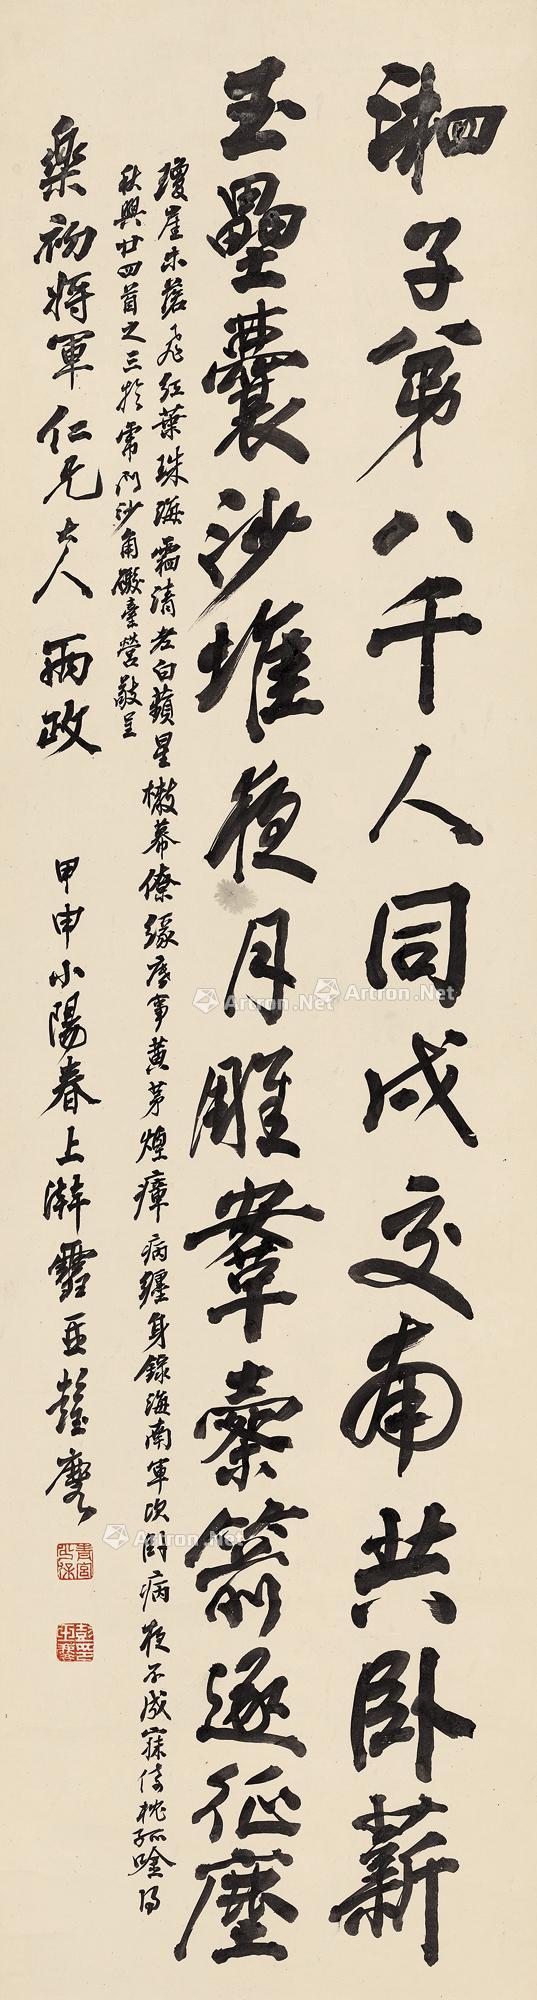 湘子弟八千人同戍交南共卧薪
玉壘囊沙堆夜月雕鞌櫜箭逐征塵
瓊崖木落飛紅葉珠海霜清老白蘋星橄幕僚緣底事黄茅煙瘴病纏身錄海南軍次卧病夜不成寐倚枕孤唫得
秋興廿四首之三於虎門沙角礮臺營敬呈
樂初將軍仁兄大人两政
甲申小陽春上澣雪
Artron.Net
Artron.Net
Artron.Net